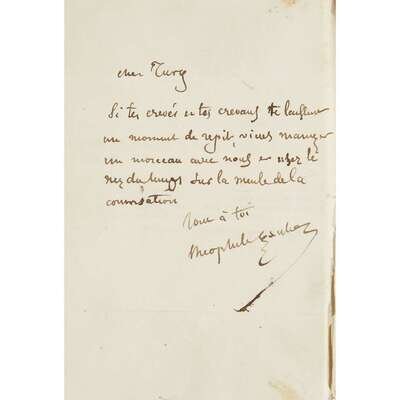 cher Turg
Si tes crevés et tes crevans te laissent
un moment de repit, viens manger
un morceau avec nous et user le
nez du temps sur la meule de la
conversation
tout à toi
Theophile Gautier